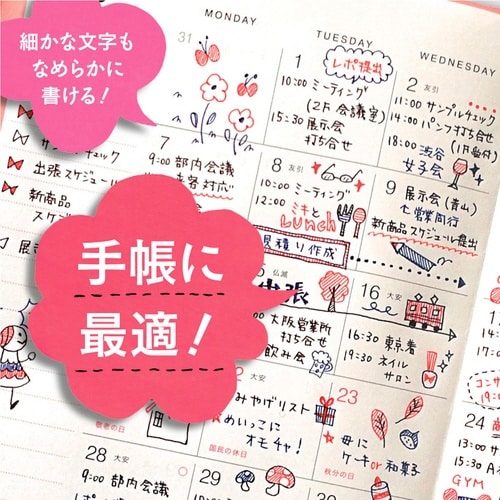 細かな文字も
なめらかに
書ける！
手帳に
最適！
MONDAY
TUESDAY
WEDNESDAY
31
1
レポ提出
10:00 ミーティング
(2F 会議室)
15:30 展示会
打ち合せ
2 友引
11:00 サンプルチェック
14:00 パンフ打ち合せ
(1R 皆付)
18:00 渋谷
女子会
サンプルチェック
出張スケジュール
新商品
スケジュ
展示
7
9:00 部内会議
来客対応
8 友引
10:00 ミーティング
12:00 ミキと
Lunch
見積り作成
9
展示会(青山)
営業同行
新商品スケジュール提出
仏滅
出張
大阪営業所
打ち合せ
飲み会
16 大安
16:30 東京着
19:30 ネイル
サロン
大安
みやげリスト
めいっこに
オモチャ！
敬老の日
国民の休日
23
母に
ケーキ or 和菓子
秋分の日
28 大安
9:00 部内会議
29
30
24
13:00
コンサ
19:0
12:00
15:30
GYM